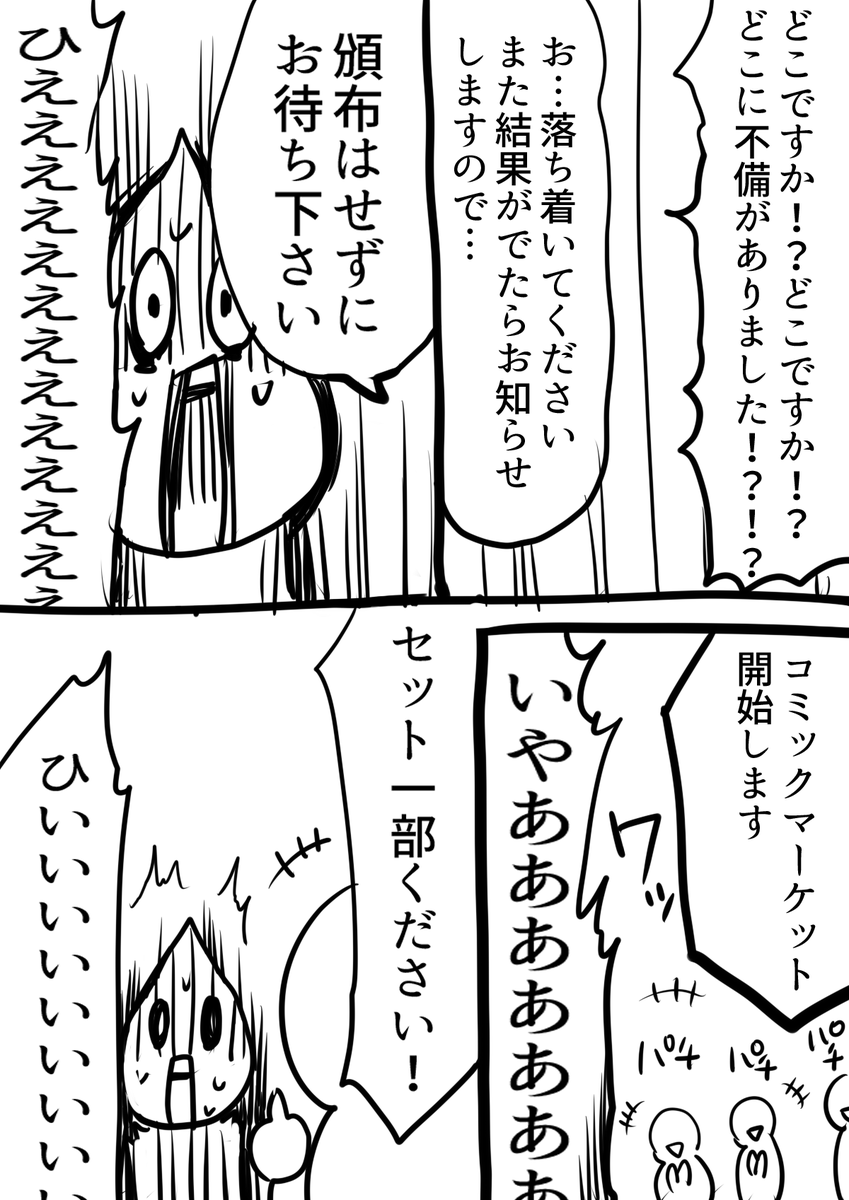 どこですか！？どこですか！？
どこに不備がありました！？！？
お…落ち着いてください
また結果がでたらお知らせ
しますので…
頒布はせずに
お待ち下さい
ひええええええええええええ
コミックマーケット
開始します
ワッ
パチ
パチ
パチ
いやああああああああ
セット一部ください！
ひいいいいいいいい